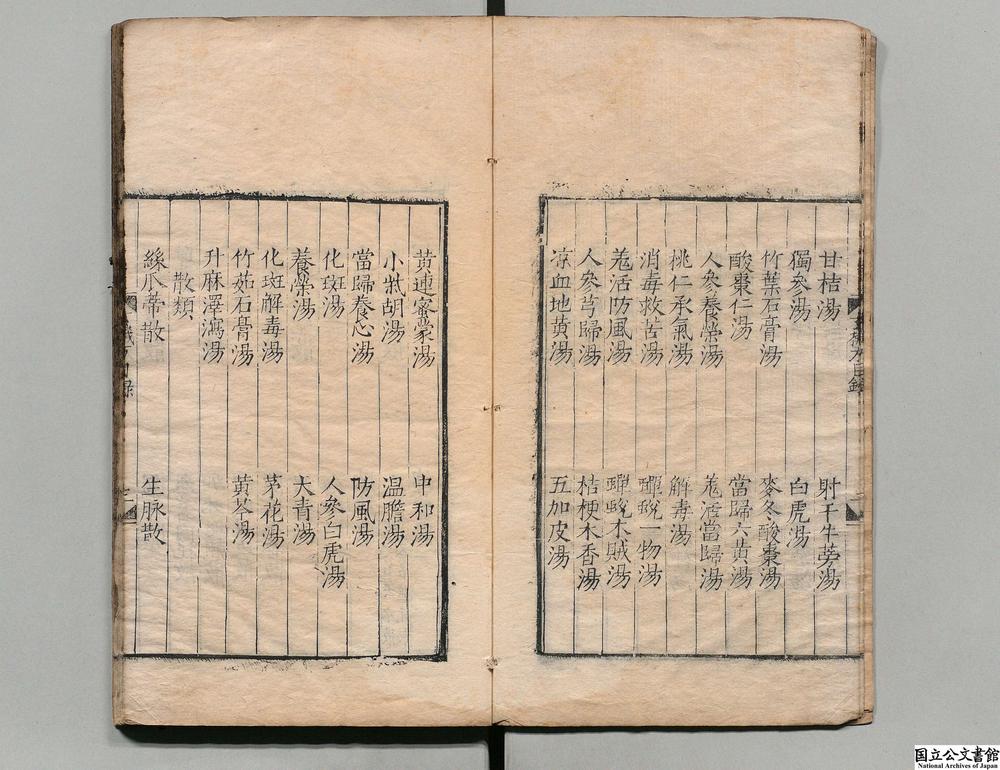 甘桔湯 射干牛蒡湯
獨參湯 白虎湯
竹葉石膏湯 麥冬酸棗湯
酸棗仁湯 當歸六黄湯
人參養榮湯 羗活當歸湯
桃仁承氣湯 解毒湯
消毒救苦湯 蟬蛻一物湯
羗活防風湯 蟬蛻木賊湯
人參芎歸湯 桔梗木香湯
凉血地黄湯 五加皮湯
黄連蜜蒙湯 中和湯
小柴胡湯 温膽湯
當歸養心湯 防風湯
化斑湯 人參白虎湯
養榮湯 大青湯
化斑解毒湯 茅花湯
竹茹石膏湯 黄芩湯
升麻澤瀉湯
散類
絲瓜蒂散 生脉散
国立公文書館
National Archives of Japan